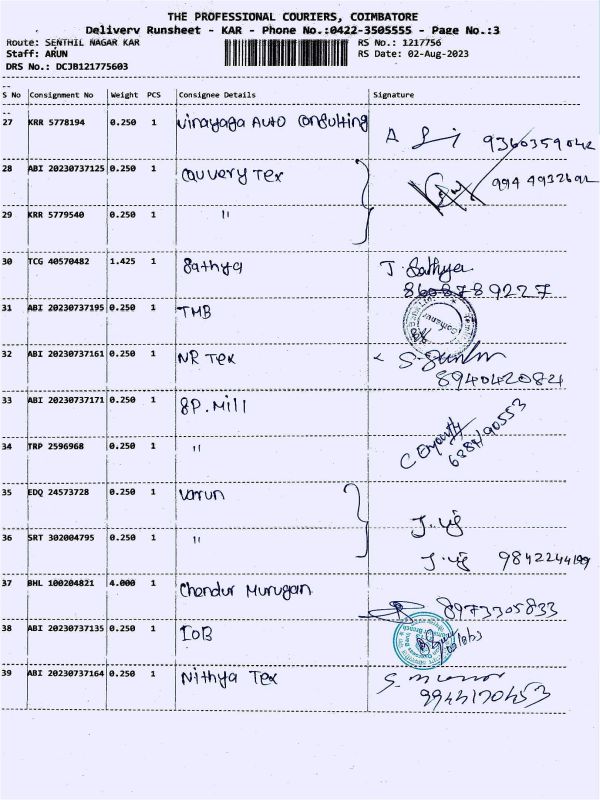 THE PROFESSIONAL COURIERS, COIMBATORE
Delivery Runsheet - KAR - Phone No.:0422-3505555 - Page No.:3
Route: SENTHIL NAGAR KAR RS No.: 1217756
Staff: ARUN RS Date: 02-Aug-2023
DRS No.: DCJB121775603
S No Consignment No Weight PCS Consignee Details Signature
27 KRR 5778194 0.250 1 Vinayaga Auto Consulting 9360359042
28 ABI 20230737125 0.250 1 Cauvery Tex 994 4932692
29 KRR 5779540 0.250 1 "
30 TCG 40570482 1.425 1 Sathya J. Sathya
8608789227
31 ABI 20230737195 0.250 1 TMB
32 ABI 20230737161 0.250 1 NR Tex
8940420821
33 ABI 20230737171 0.250 1 SP. Mill
34 TRP 2596968 0.250 1 "
35 EDQ 24573728 0.250 1 Varun
36 SRT 302004795 0.250 1 " 9842244199
37 BHL 100204821 4.000 1 Chendur Murugan 8973305833
38 ABI 20230737135 0.250 1 IOB
39 ABI 20230737164 0.250 1 Nithya Tex
9944170453